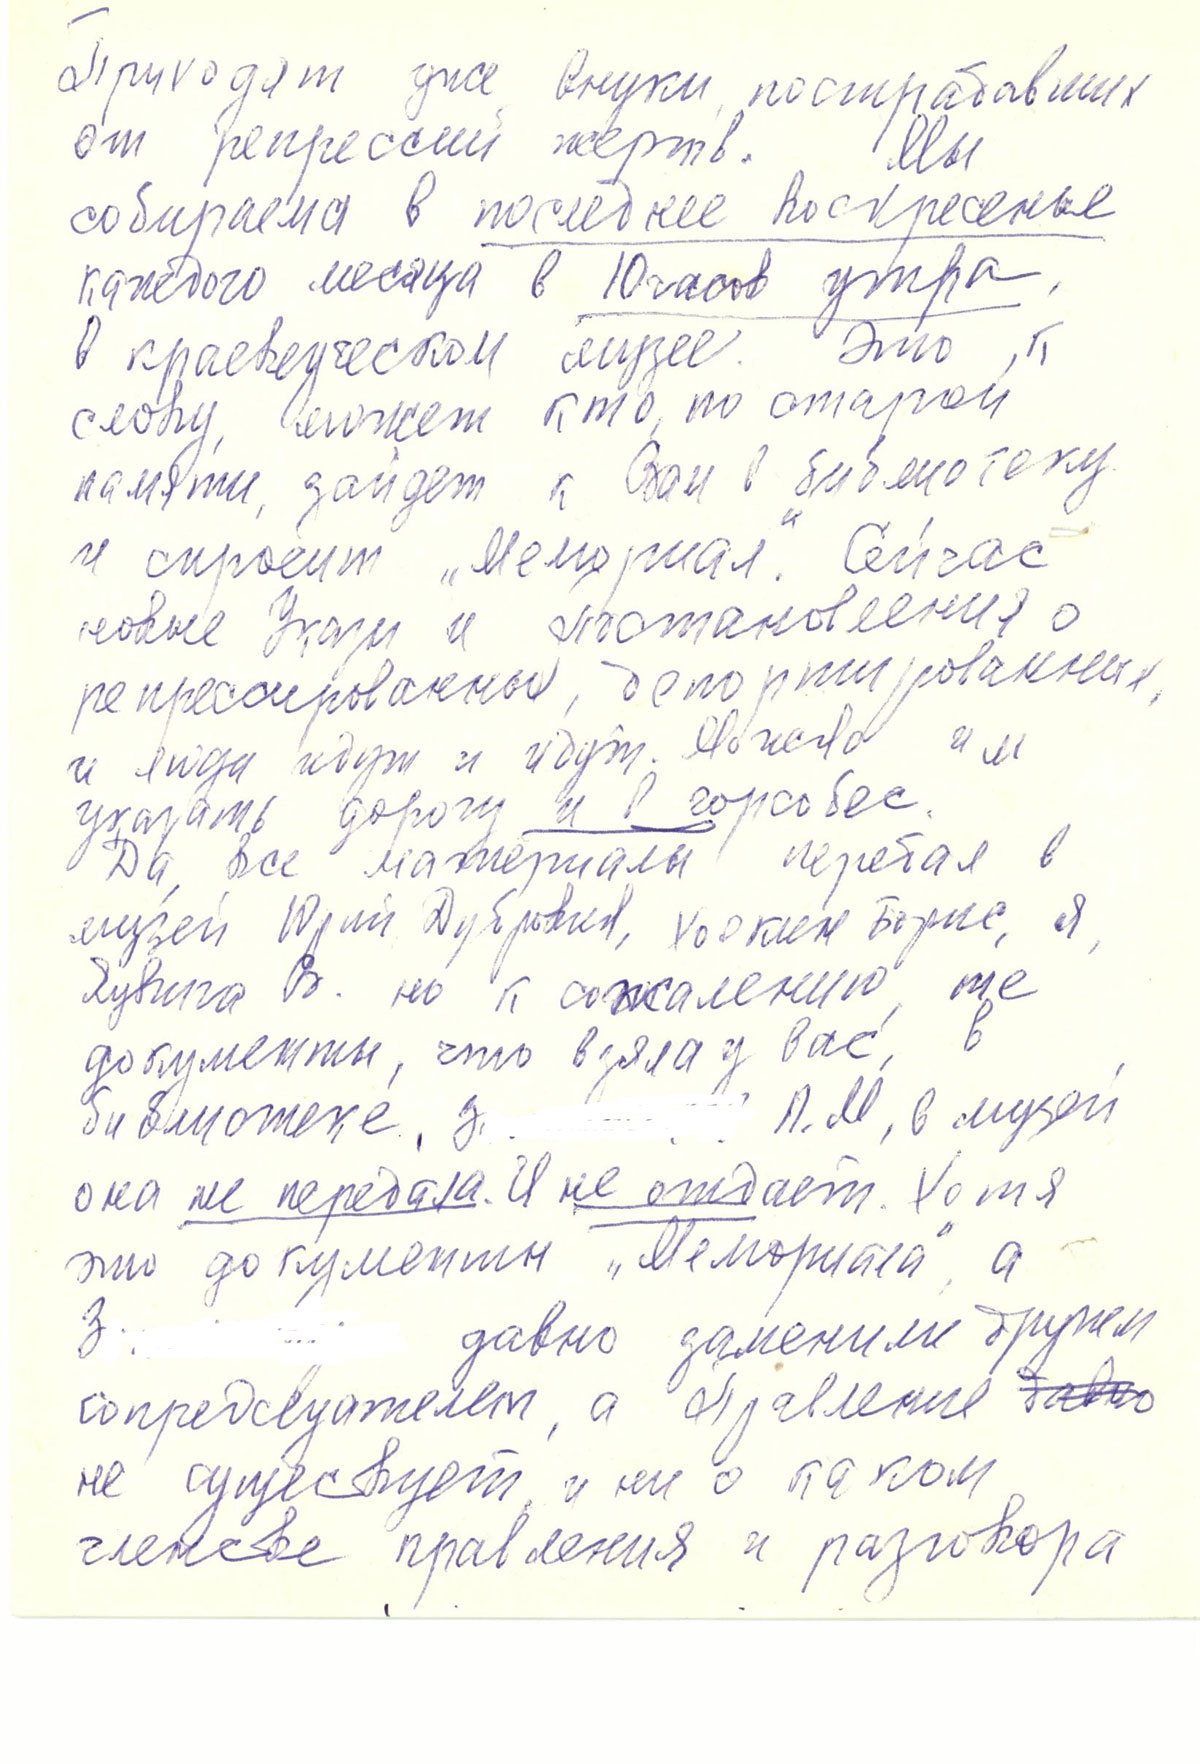 Приходят уже внуки, пострабавших
от репрессий жертв. Мы
собираемя в последнее воскресенье
каждого месяца в 10 часов утра,
в краеведческом музее. Это, к
слову, может кто, по старой
памяти, зайдет к Вам в библиотеку
и спросит „Мемориал“. Сейчас
новые Указы и Постановления о
репрессированных, депортированных,
и люди идут и идут. Можно им
указать дорогу и в горсобес.
Да, все материалы передал в
музей Юрий Дубровин, Борис, я,
В. но к сожалению, те
документы, что взяла у Вас, в
библиотеке, З. Л.М, в музей
она не передала. И не отдает. Хотя
это документы „Мемориала“, а
З. давно заменили другим
сопредседателем, а Правление
не существует, и ни о каком
членсве правления и разговора